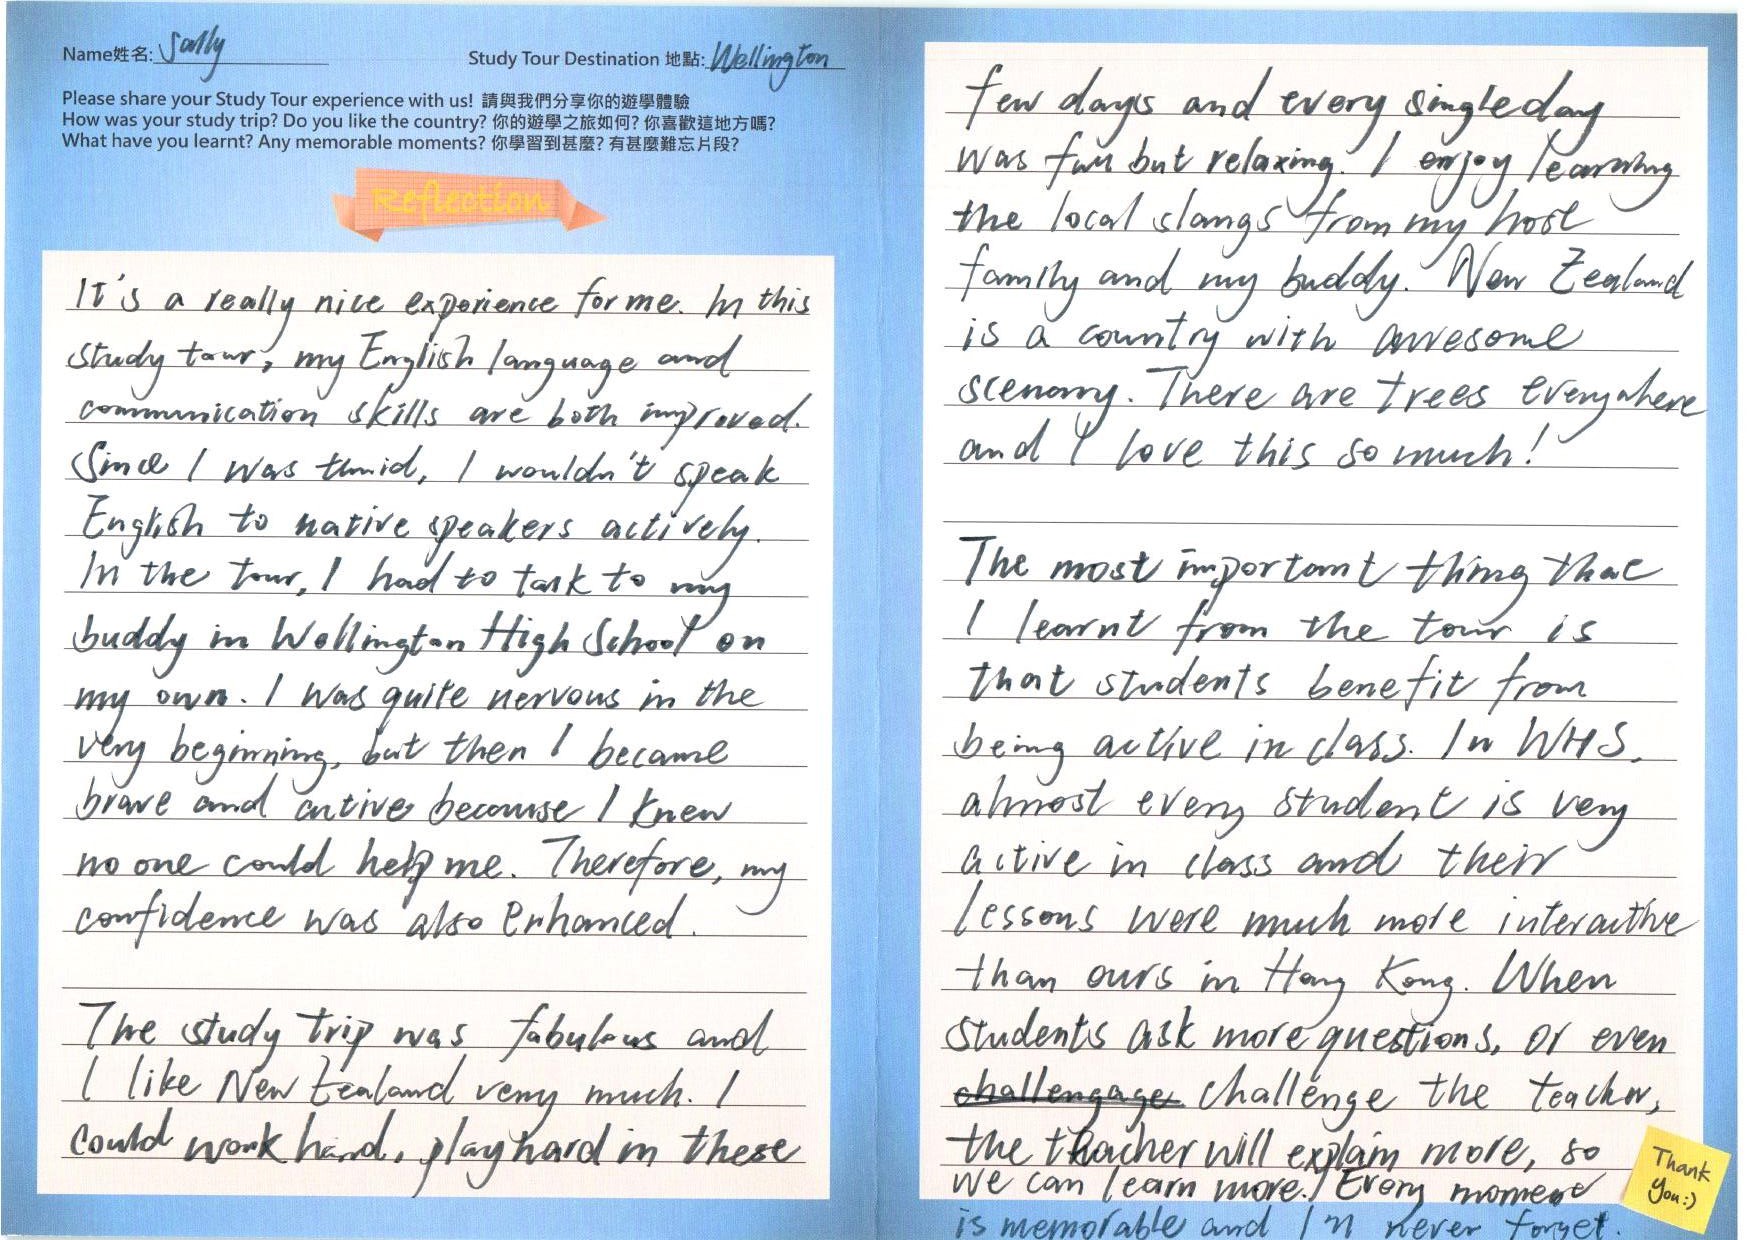 Name姓名: Sally
Study Tour Destination 地點: Wellington
Please share your Study Tour experience with us! 請與我們分享你的遊學體驗
How was your study trip? Do you like the country? 你的遊學之旅如何? 你喜歡這地方嗎?
What have you learnt? Any memorable moments? 你學習到甚麼? 有甚麼難忘片段?
Reflection
It's a really nice experience for me. In this
study tour, my English language and
communication skills are both improved.
Since I was timid, I wouldn't speak
English to native speakers actively.
In the tour, I had to talk to my
buddy in Wellington High School on
my own. I was quite nervous in the
very beginning, but then I became
brave and active because I knew
no one could help me. Therefore, my
confidence was also enhanced.
The study trip was fabulous and
I like New Zealand very much. I
could work hard, play hard in these
few days and every single day
was fun but relaxing. I enjoy learning
the local slangs from my host
family and my buddy. New Zealand
is a country with awesome
scenery. There are trees everywhere
and I love this so much!
The most important thing that
I learnt from the tour is
that students benefit from
being active in class. In WHS,
almost every student is very
active in class and their
lessons were much more interactive
than ours in Hong Kong. When
students ask more questions, or even
challengage challenge the teacher,
the teacher will explain more, so
we can learn more. Every moment
is memorable and I'll never forget.
Thank
you :)